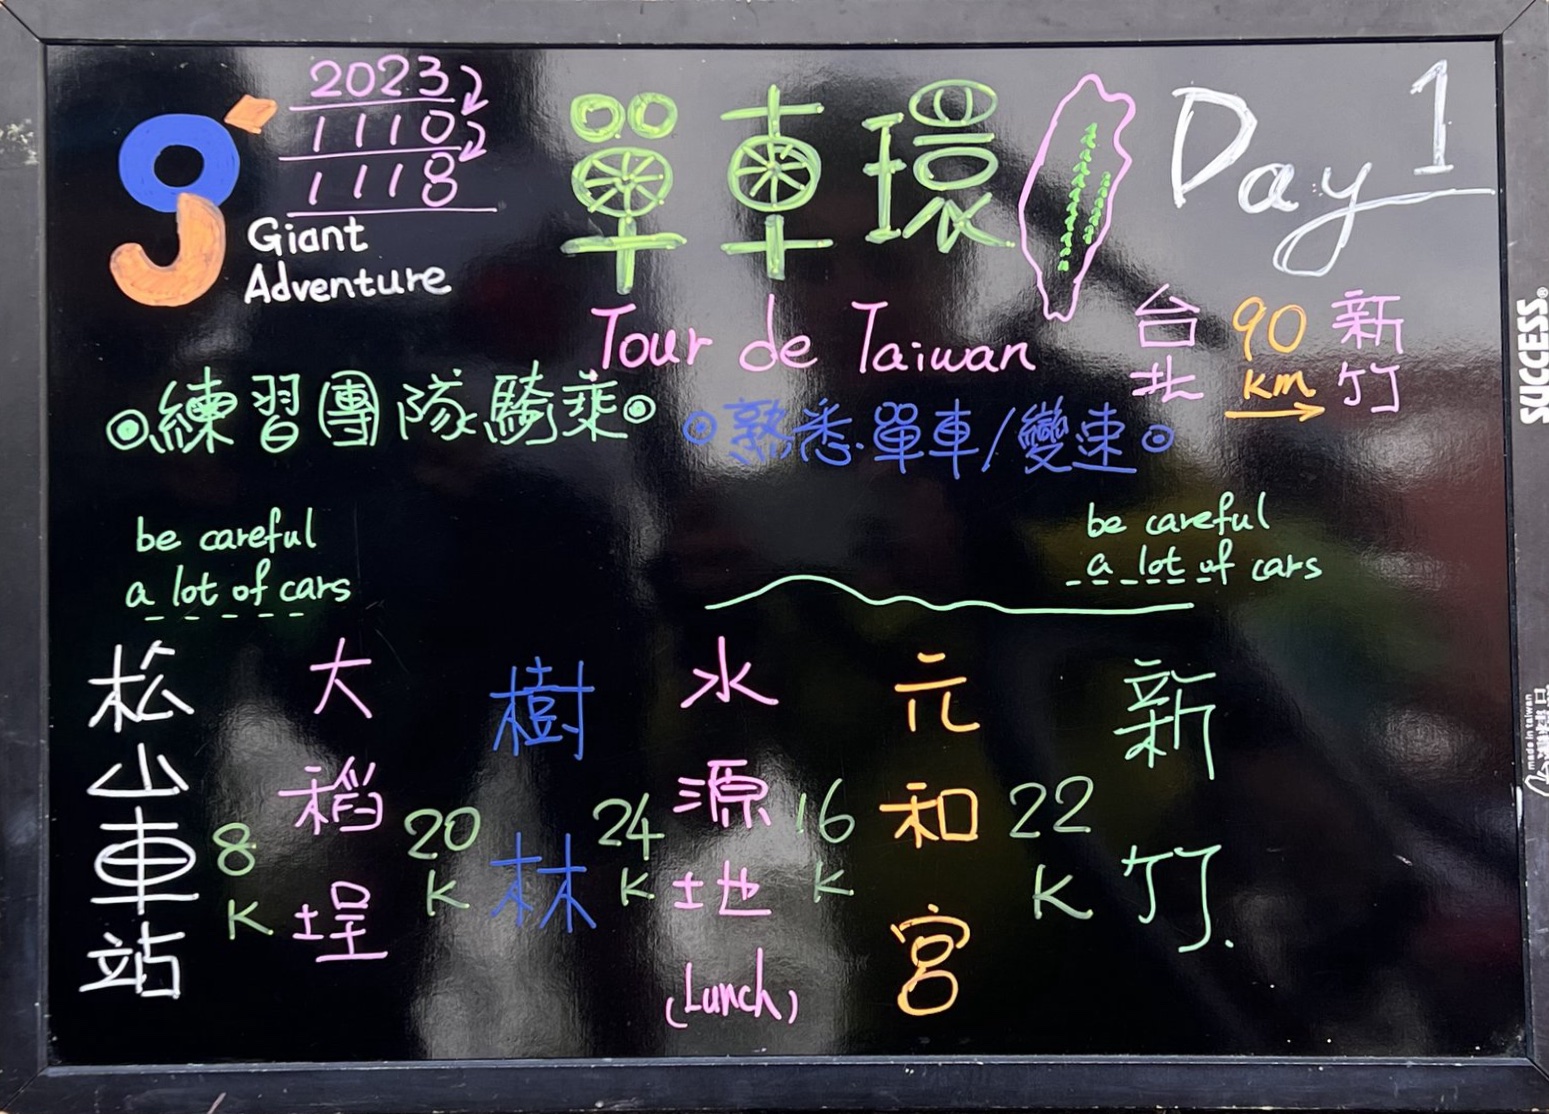 2023
1110
1118
Giant
Adventure
單車環
Day 1
Tour de Taiwan
台北 90 km 新竹
練習團隊騎乘
熟悉單車/變速
be careful
a lot of cars
be careful
a lot of cars
松山車站
8K
大稻埕
20K
樹林
24K
水源地
(Lunch)
16K
元和宮
22K
新竹.
SUCCESS®
made in taiwan